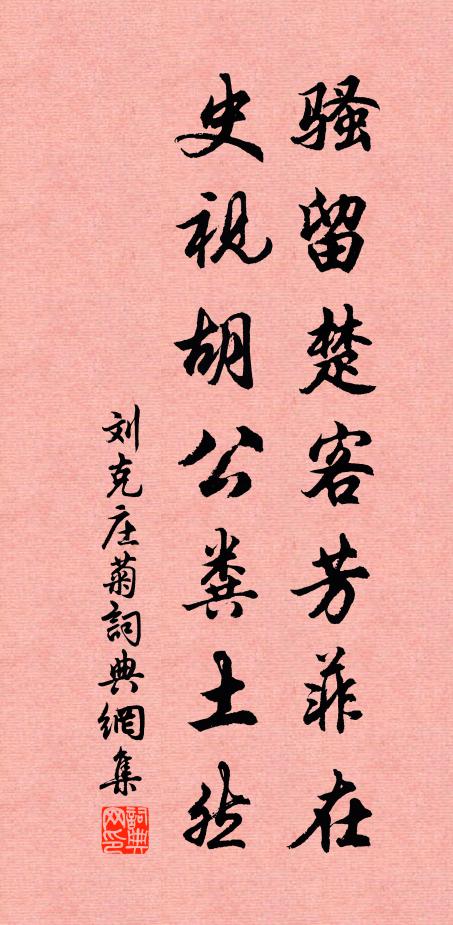 骚留楚客芳菲在
史视胡公粪土然
刘克庄菊詞典網集
詞典网印